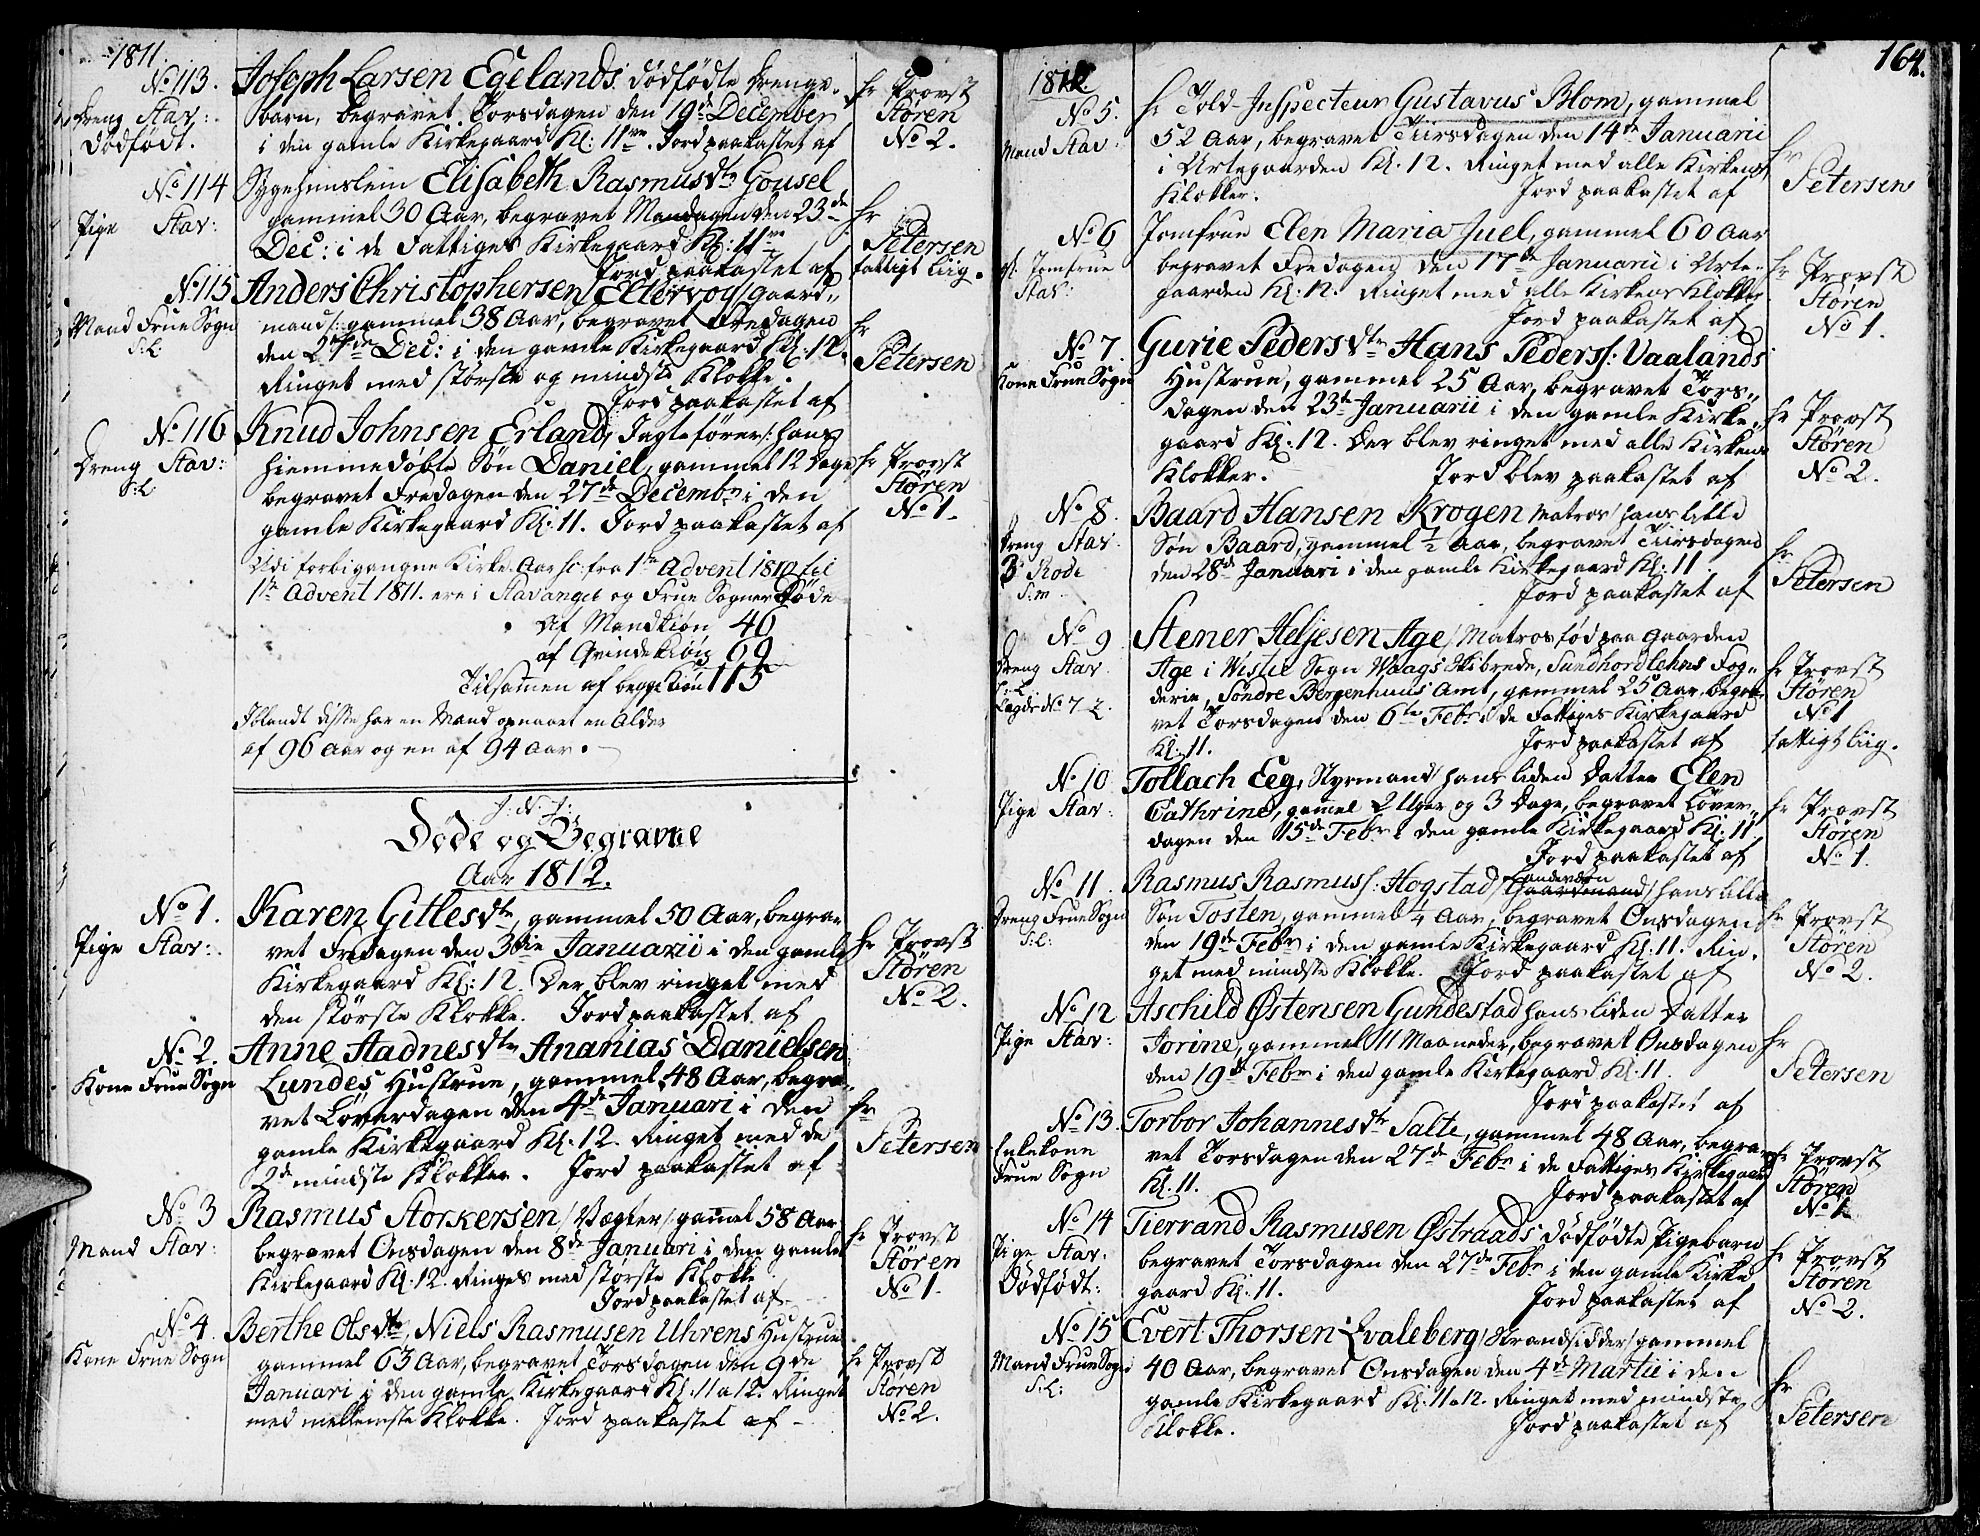 1811.
No 113.
Dreng Stav:
Dödfödt.
Joseph Larsen Egelands dödfödte Drenge-
barn, begravet Torsdagen den 19de December
i den gamle Kirkegaard Kl: 11ve. Jord paakastet af
hr Provst
Stören
No 2.
No 114
Pige Stav:
Sygehuuslem Elisabeth Rasmusdtr Gousel
gammel 30 Aar, begravet Mandagen den 23de
Dec: i de Fattiges Kirkegaard Kl: 11ve
Jord paakastet af
hr
Petersen
fattigt Liig.
No 115
Mand Frue Sogn
S:L:
Anders Christophersen Eltervog/Gaard-
mand/: gammel 38 Aar, begravet Fredagen
den 27de Dec: i den gamle Kirkegaard Kl: 12.
Ringet med störste og mindste Klokke.
Jord paakastet af
hr
Petersen
No 116
Dreng Stav:
S:L
Knud Johnsen Erland, Jagtefører/: hans
hiemmedöbte Sön Daniel, gammel 12 Dage
begravet Fredagen den 27de Decembr i den
gamle Kirkegaard Kl: 11. Jord paakastet af
hr Provst
Stören
No 1.
Udi forbigangne Kirke-Aar sc: fra 1ste Advent 1810 til
1ste Advent 1811. ere i Stavanger og Frue Sogner Döde
Af Mandkiön 46
af Qvindekiön 69
Tilsammen af begge Kiön 115
Iblandt disse har en Mand opnaaet en Alder
af 96 Aar og en af 94 Aar.
J. N. J:
Döde og Begravne
Aar 1812.
No 1.
Pige Stav:
Karen Gitlesdtr, gammel 50 Aar, begra-
vet Fredagen den 3die Januarii i den gamle
Kirkegaard Kl: 12. Der blev ringet med
den störste Klokke. Jord paakastet af
hr Provst
Stören
No 2.
No 2.
Kone Frue Sogn
Anne Aadnesdtr Ananias Danielsen
Lundes Hustrue, gammel 48 Aar, begra-
vet Løverdagen den 4de Januari i den
gamle Kirkegaard Kl: 12. Ringet med de
2de mindste Klokker. Jord paakastet af
hr
Petersen
No 3
Mand Stav:
Rasmus Storkersen/Vægter/gammel 58 Aar
begravet Onsdagen den 8de Januari i den gamle
Kirkegaard Kl. 12. Ringet med störste Klokke
Jord paakastet af
hr Provst
Stören
No 1.
No 4.
Kone Frue Sogn
Berthe Olsdtr, Niels Rasmusen Uhrens Hustrue
gammel 63 Aar, begravet Torsdagen den 9de
Januari i den gamle Kirkegaard Kl. 11 a 12. Ringet
med mellemste Klokke. Jord paakastet af
hr Provst
Stören
No 2.
164.
1812.
No 5.
Mand Stav:
hr Told-Inspecteur Gustavus Blom, gammel
52 Aar, begravet Tiirsdagen den 14de Januarii
i Urtegaarden Kl. 12. Ringet med alle Kirkens
Klokker. Jord paakastet af
hr
Petersen
No 6
gl. Jomfrue
Stav:
Jomfrue Elen Maria Juel, gammel 60 Aar
begravet Fredagen den 17de Januarii i Urte-
gaarden Kl. 12. Ringet med alle Kirkens Klokker
Jord paakastet af
hr Provst
Stören
No 1.
No 7.
Kone Frue Sogn
Gurie Pedersdtr Hans Peders: Vaalands
Hustrue, gammel 25 Aar, begravet Tors-
dagen den 23de Januarii i den gamle Kirke-
gaard Kl. 12. Der blev ringet med alle Kirkens
Klokker. Jord blev paakastet af
hr Provst
Stören
No 2.
No 8.
Dreng Stav.
3 Rode
S:m
Baard Hansen Krogen Matros/hans lille
Sön Baard, gammel 1/2 Aar, begravet Tiirsdagen
den 28de Januari i den gamle Kirkegaard Kl: 11
Jord paakastet af
hr
Petersen
No 9
Dreng Stav.
S:L
Lægds No 7
Stener Heljesen Age/Matros föd paa Gaarden
Age i Sogn Waags Skibrede, Sundhordlehns Fog-
derie, Søndre Bergenhuus Amt, gammel 25 Aar, begra-
vet Torsdagen den 6te Febr i de Fattiges Kirkegaard
Kl: 11. Jord paakastet af
hr Provst
Stören
No 1
fattigt Liig.
No 10
Pige Stav:
Tollach Eeg, Styrmand/hans liden Datter Elen
Cathrine, gammel 2 Uger og 3 Dage, begravet Løver-
dagen den 15de Febr i den gamle Kirkegaard Kl: 11.
Jord paakastet af
hr Provst
Stören
No 1.
No 11
Dreng Frue Sogn
S:L:
Rasmus Rasmuss: Hogstad/Gaardmand/hans lille
Sön Tosten, gammel 1/4 Aar, begravet Onsdagen
den 19de Febr i den gamle Kirkegaard Kl: 11. Rin-
get med mindste Klokke. Jord paakastet af
hr Provst
Stören
No 2.
No 12
Pige Stav:
Aschild Østensen Gundestad hans liden Datter
Jorine, gammel 11 Maaneder, begravet Onsdagen
den 19de Febr i den gamle Kirkegaard Kl: 11.
Jord paakastet af
hr
Petersen
No 13.
Enkekone
Frue Sogn
Torbor Johannesdtr Salte, gammel 48 Aar, begra-
vet Torsdagen den 27de Febr i de Fattiges Kirkegaard
Kl: 11.
Jord paakastet af
hr Provst
Stören
No 1
No 14
Pige Stav:
Dödfödt:
Tierrand Rasmusen Østraads dödfödte Pigebarn
begravet Torsdagen den 27de Febr i den gamle Kirke
gaard Kl: 11. Jord paakastet af
hr Provst
Stören
No 2.
No 15
Mand Frue Sogn
S:L:
Evert Thorsen Evaleberg/Strandsidder/gammel
40 Aar, begravet Onsdagen den 4de Martii i den
gamle Kirkegaard Kl. 11 a 12. Ringet med mindste
Klokke. Jord paakastet af
hr
Petersen